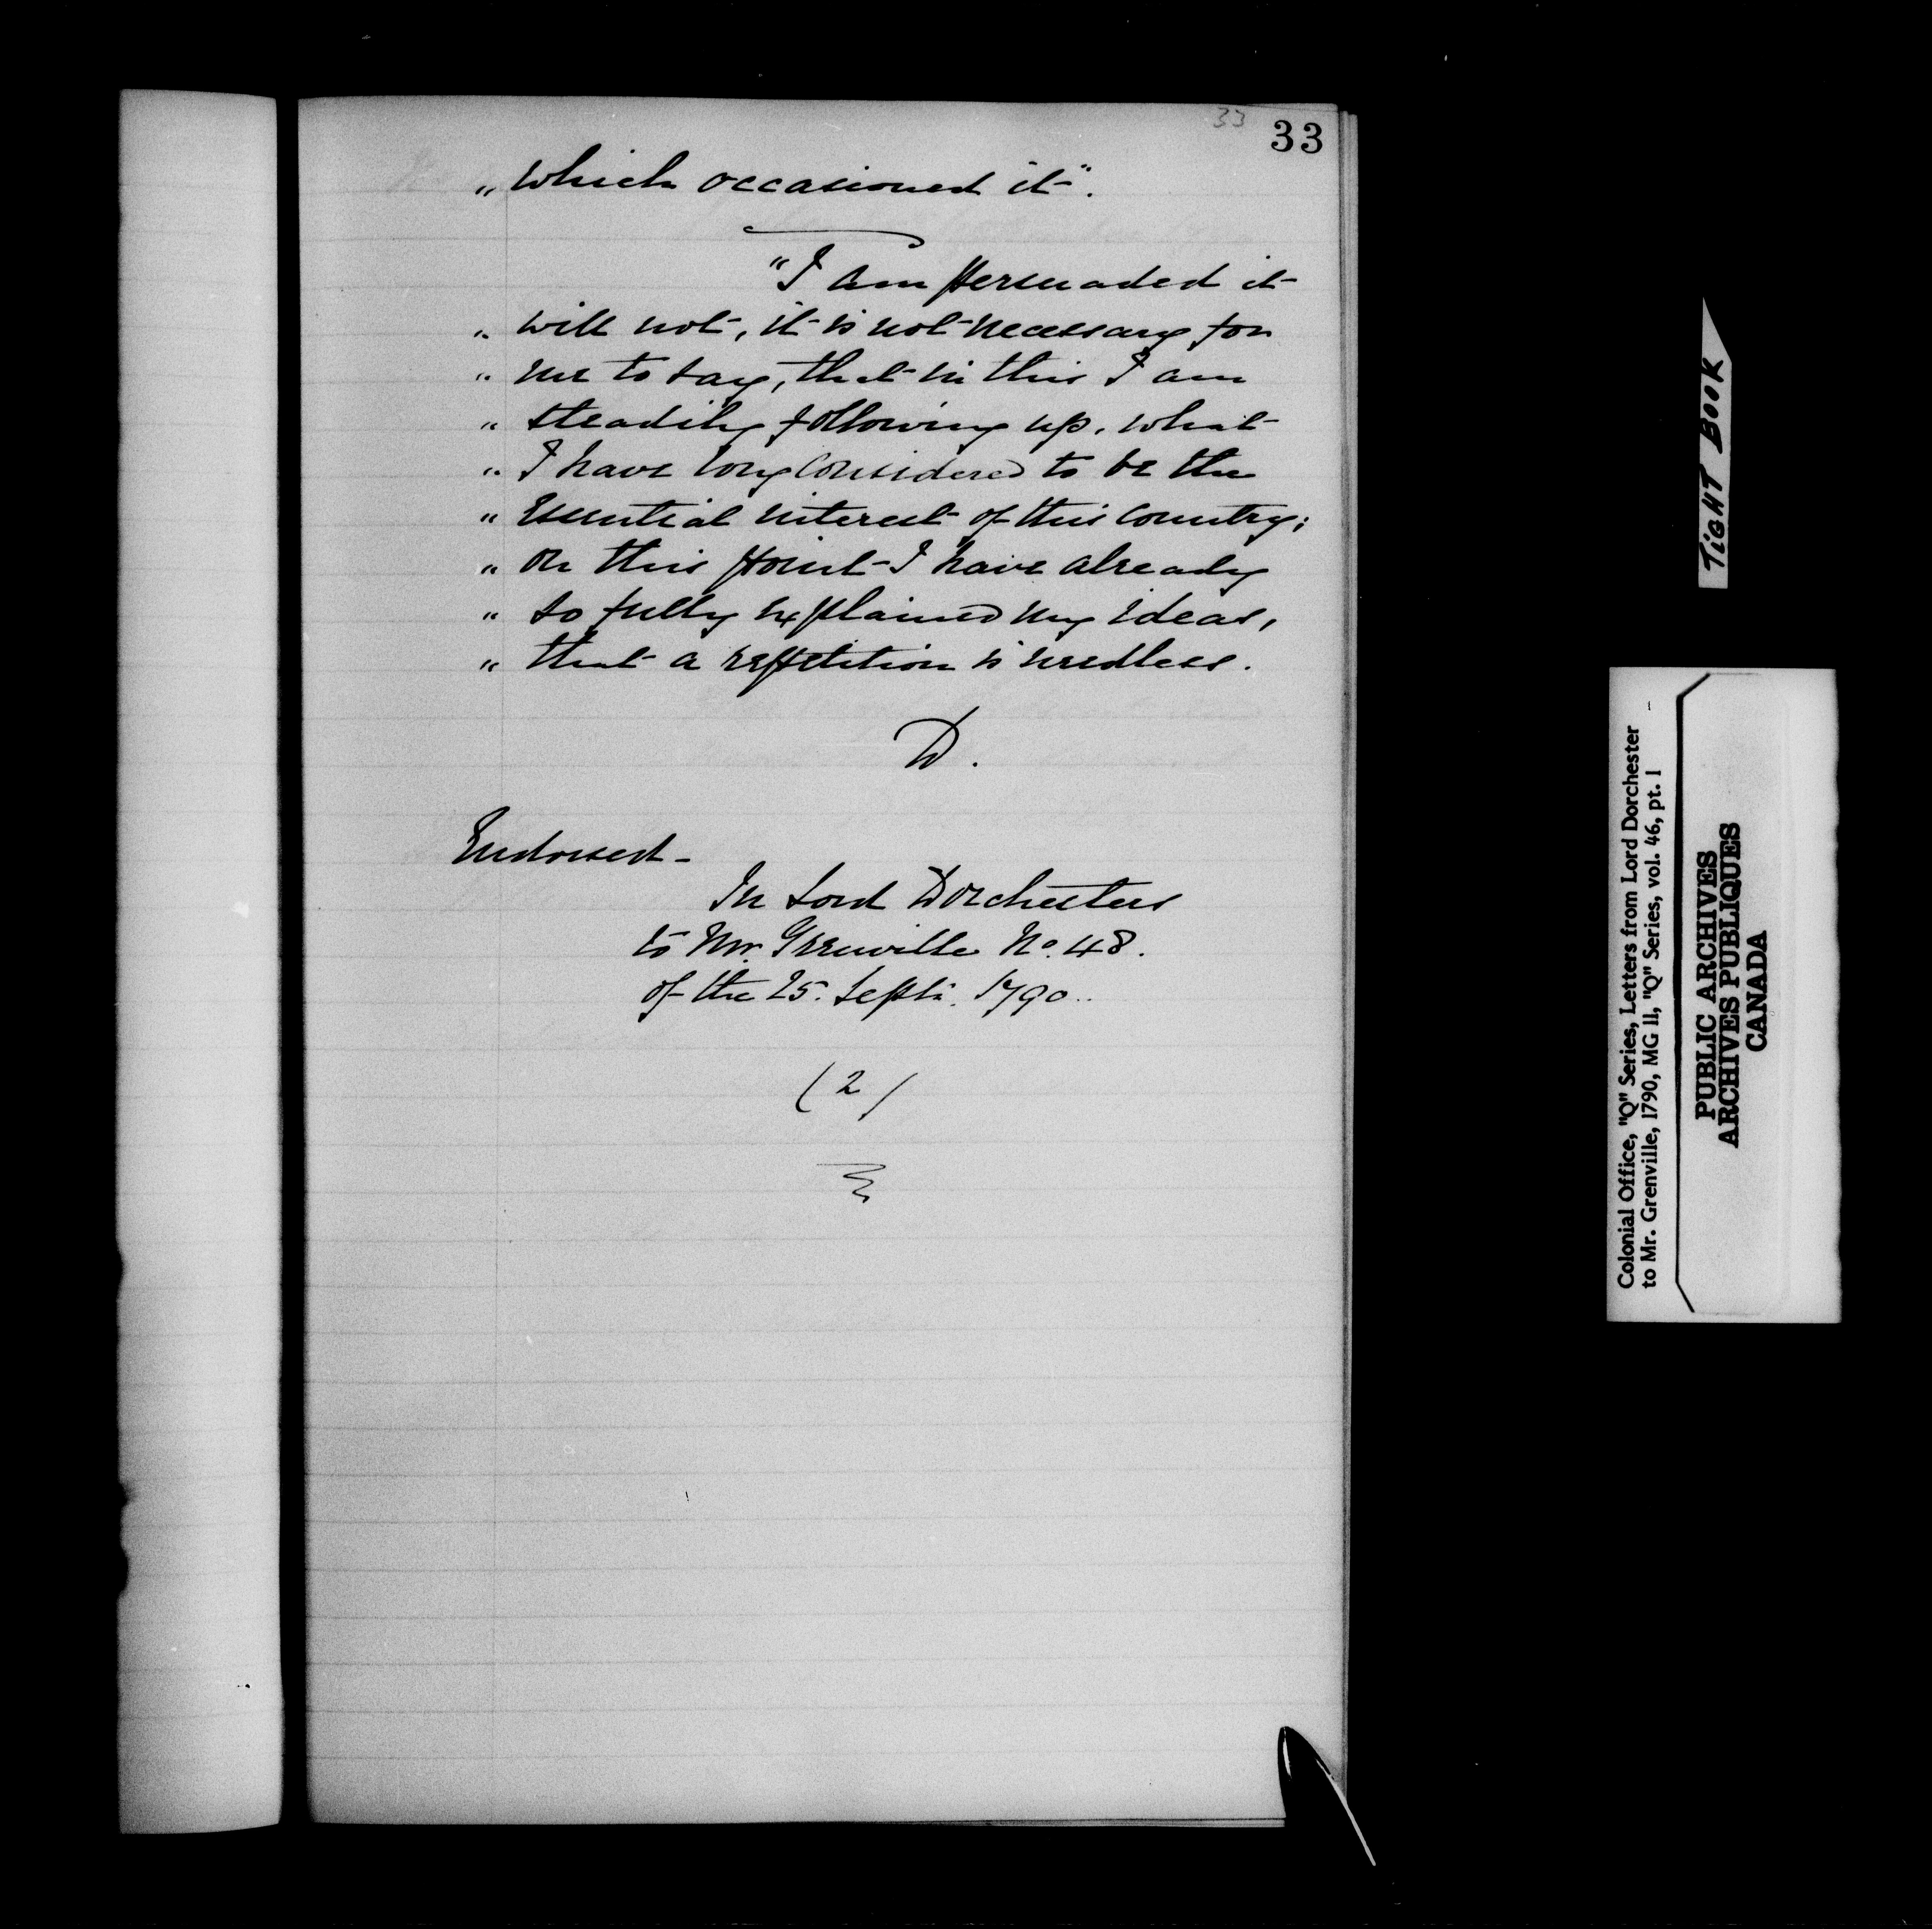 33 33
„ which occasioned it".
"I am persuaded it
„ will not, it is not necessary for
„ me to say, that in this I am
„ steadily following up, what
„ I have long considered to be the
„ Essential interest of this Country;
„ on this point I have already
„ so fully explained my ideas,
„ that a repetition is needless.
D.
Endorsed -
In Lord Dorchesters
to Mr. Grenville No. 48.
of the 25. Septr. 1790.
(2)
TIGHT BOOK
Colonial Office, "Q" Series, Letters from Lord Dorchester
to Mr. Grenville, 1790, MG 11, "Q" Series, vol. 46, pt. 1
PUBLIC ARCHIVES
ARCHIVES PUBLIQUES
CANADA